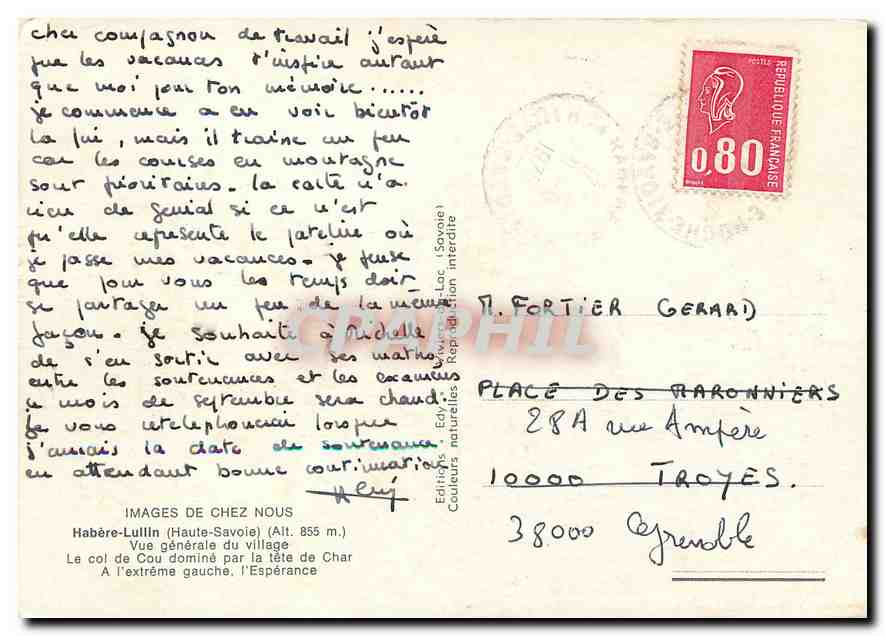 cher compagnon de travail j'espère
que les vacances t'inspire autant
que moi pour ton mémoire......
je commence a en voir bientôt
la fin, mais il traine un peu
car les courses en montagne
sont prioritaires. la carte n'a
rien de genial si ce n'est
qu'elle represente le patelin où
je passe mes vacances. je pense
que pour vous les temps doit
se partager un peu de la meme
façon. je souhaite à Michelle
de s'en sortir avec ses maths,
entre les soutenances et les examens
ce mois de septembre sera chaud.
Je vous retelephonerai lorsque
j'aurais la date de soutenance.
en attendant bonne continuation
IMAGES DE CHEZ NOUS
Habère-Lullin (Haute-Savoie) (Alt. 855 m.)
Vue générale du village
Le col de Cou dominé par la tête de Char
A l'extrême gauche, l'Espérance
Editions Edy Viviers-du-Lac (Savoie)
Couleurs naturelles Reproduction interdite
POSTES
REPUBLIQUE FRANÇAISE
0,80
CPAPHIL
M. FORTIER GERARD
PLACE DES MARONNIERS
28A rue Ampère
10000 TROYES.
38000 Grenoble